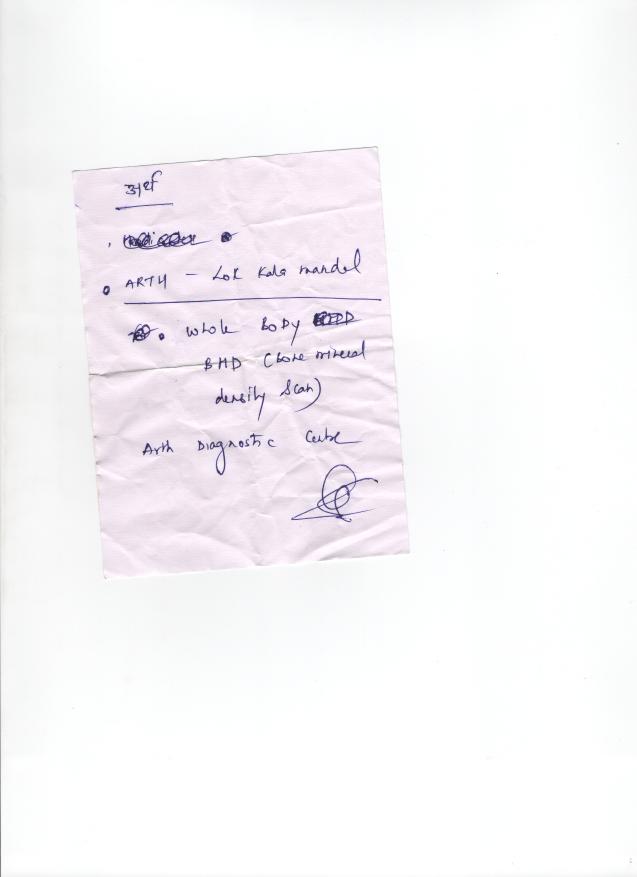 अर्थ
ARTH - Lok Kala mandal
Whole Body
BMD (Bone mineral
density Scan)
Arth Diagnostic Centre